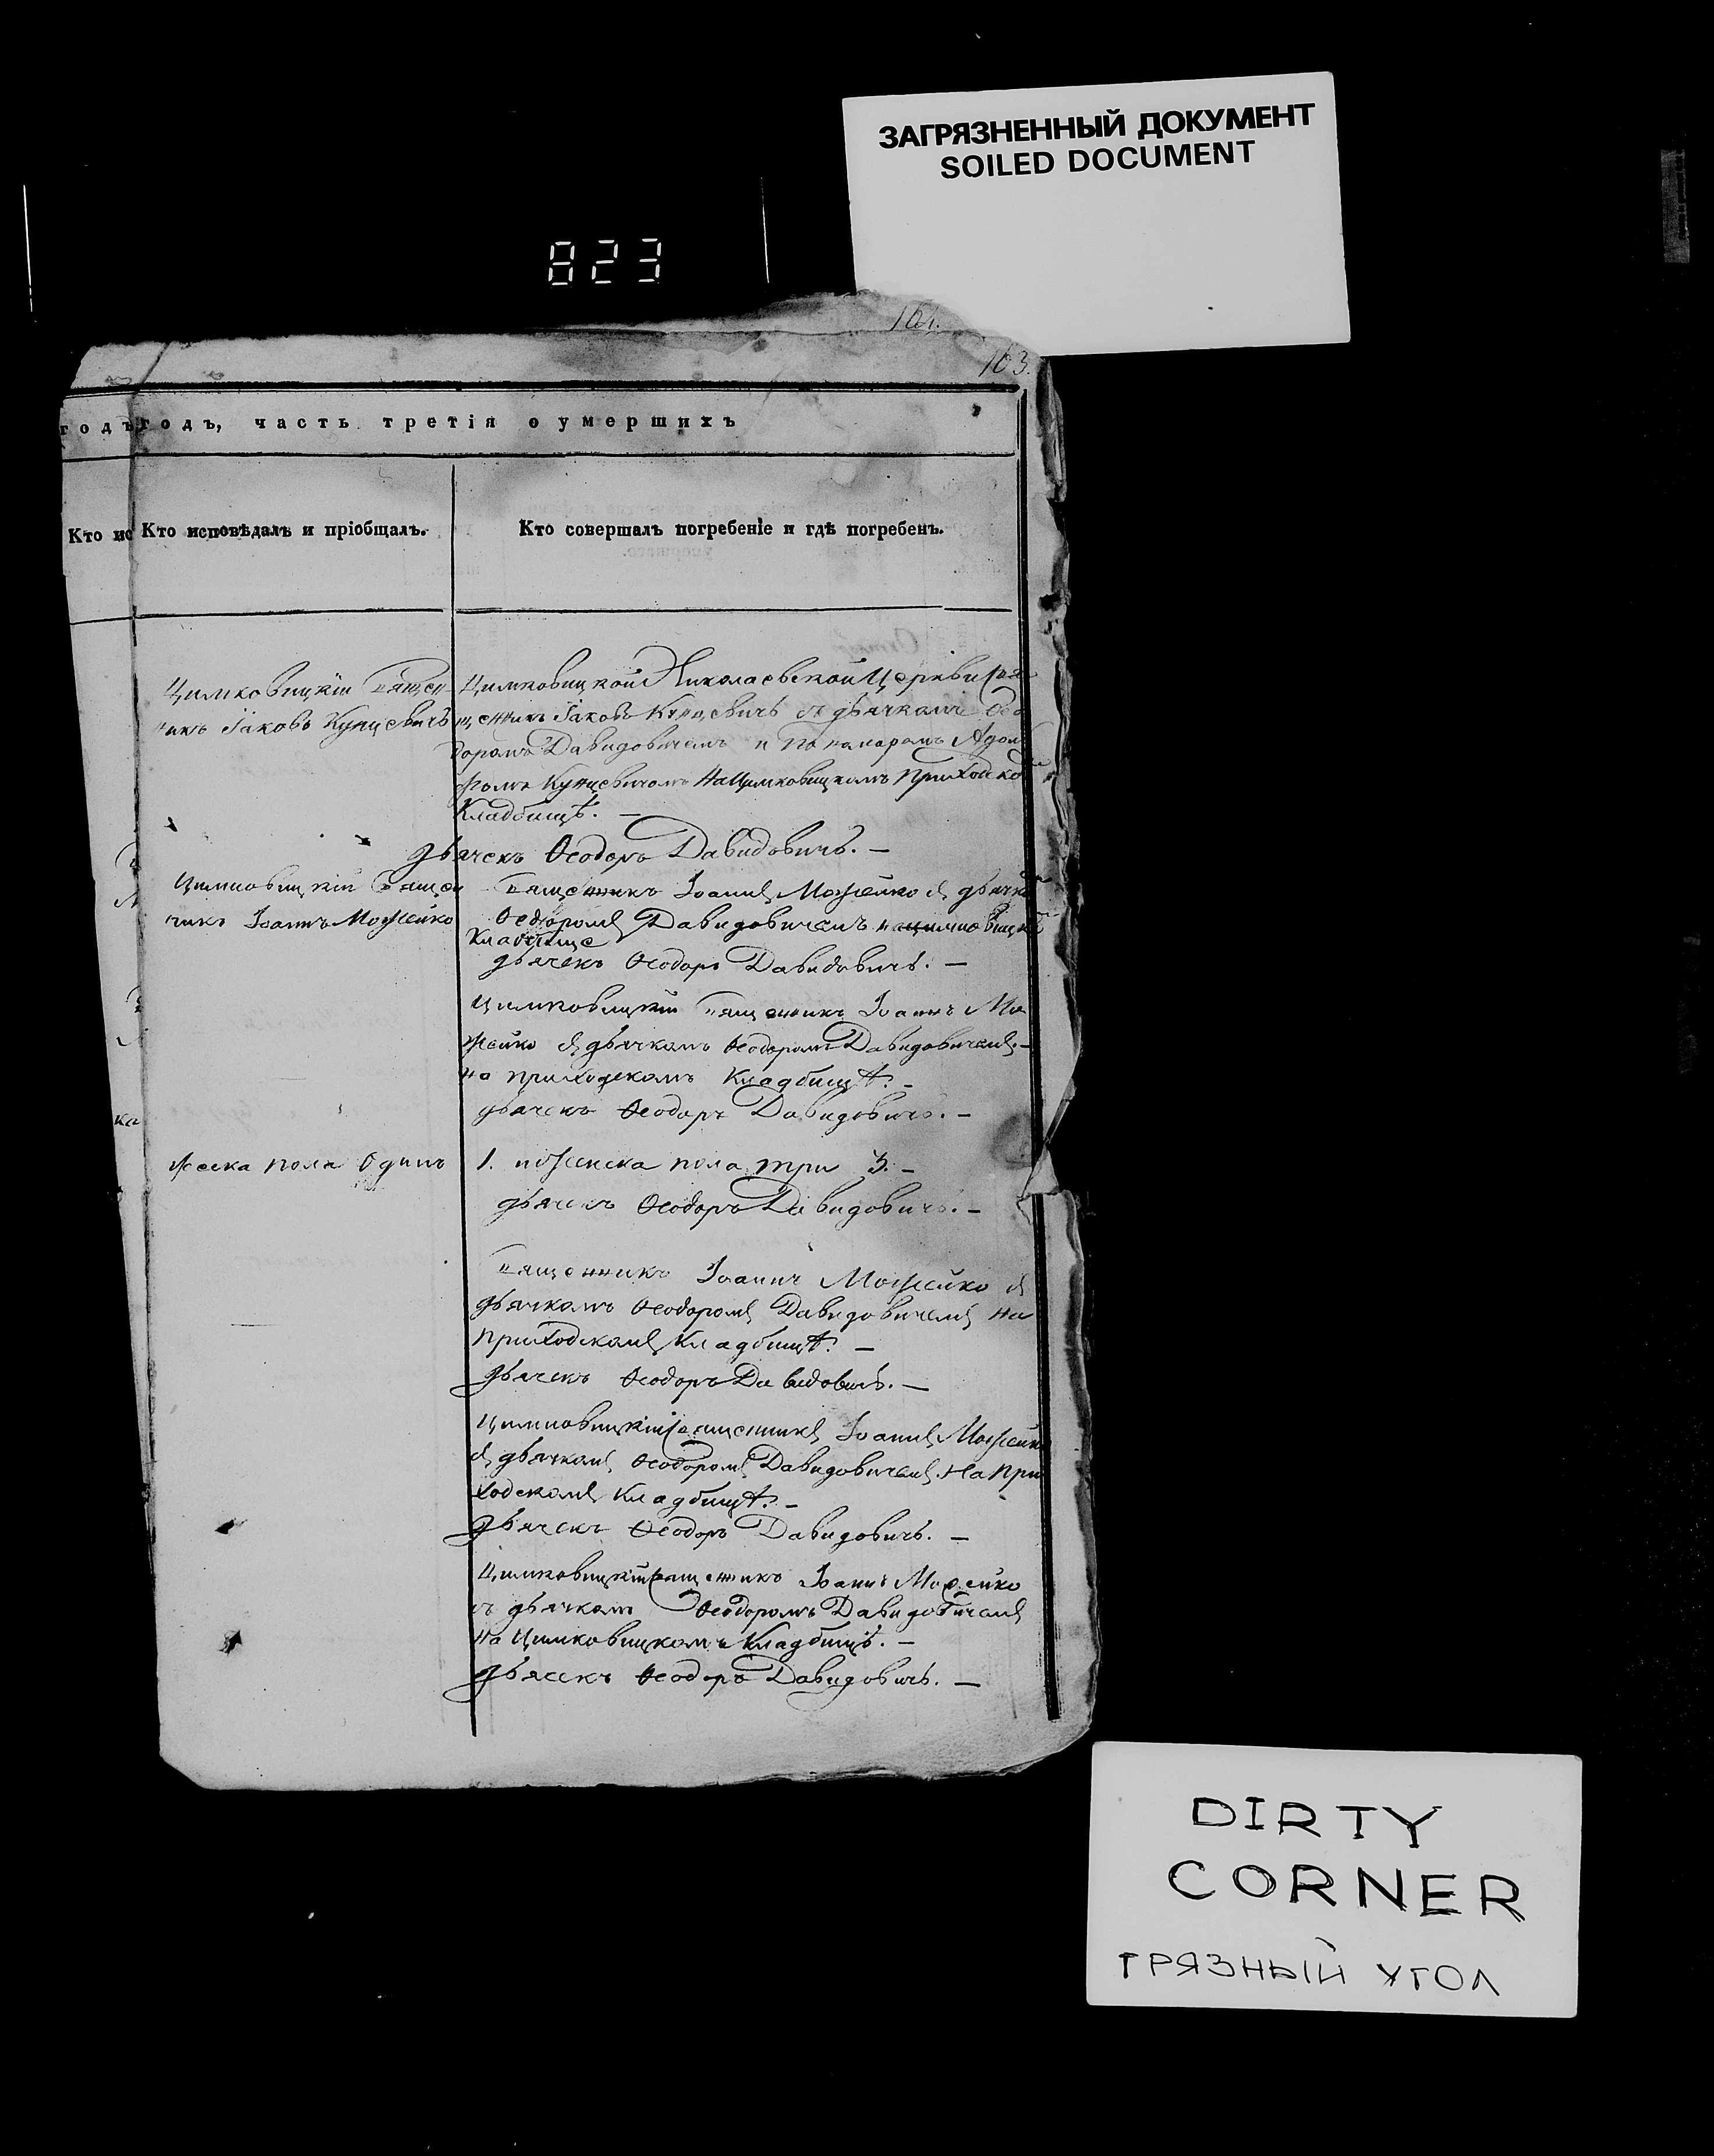 ЗАГРЯЗНЕННЫЙ ДОКУМЕНТ
SOILED DOCUMENT
823
161.
163.
годъ, часть третія о умершихъ
Кто ис
Кто исповѣдалъ и пріобщалъ.
Кто совершалъ погребеніе и гдѣ погребенъ.
Цимковицкій Священ
никъ Іаковъ Кунцевичъ
Цимковицкой Николаевской Церкви Свя
щенникъ Іаковъ Кунцевичъ съ дьячкомъ Ѳео
доромъ Давидовичемъ и пономаромъ Адоль
фомъ Кунцевичомъ на Цимковицкомъ приходском
Кладбищѣ. —
дьячекъ Ѳеодоръ Давидовичъ. —
Цимковицкій Священ
никъ Іоаннъ Можейко
Священникъ Іоаннъ Можейко съ дьячко
Ѳеодоромъ Давидовичемъ на цимковицко
Кладбище
дьячекъ Ѳеодоръ Давидовичъ. —
Цимковицкій Священникъ Іоаннъ Мо
жейко съ дьячкомъ Ѳеодоромъ Давидовичемъ. —
на приходскомъ Кладбищѣ. —
дьячекъ Ѳеодоръ Давидовичъ. —
ка
жеска пола Одинъ
1. и женска пола три 3. —
дьячекъ Ѳеодоръ Давидовичъ. —
Священникъ Іоаннъ Можейко съ
дьячкомъ Ѳеодоромъ Давидовичемъ на
приходскомъ Кладбищѣ. —
Дьячекъ Ѳеодоръ Давидовичъ. —
Цимковицкій Священникъ Іоаннъ Можейко
съ дьячкомъ Ѳеодоромъ Давидовичемъ. На при
ходскомъ Кладбищѣ. —
Дьячекъ Ѳеодоръ Давидовичъ. —
Цимковицкій Священникъ Іоаннъ Можейко
съ дьячкомъ Ѳеодоромъ Давидовичемъ
на Цимковицкомъ Кладбищѣ. —
Дьячекъ Ѳеодоръ Давидовичъ. —
DIRTY
CORNER
ГРЯЗНЫЙ УГОЛ